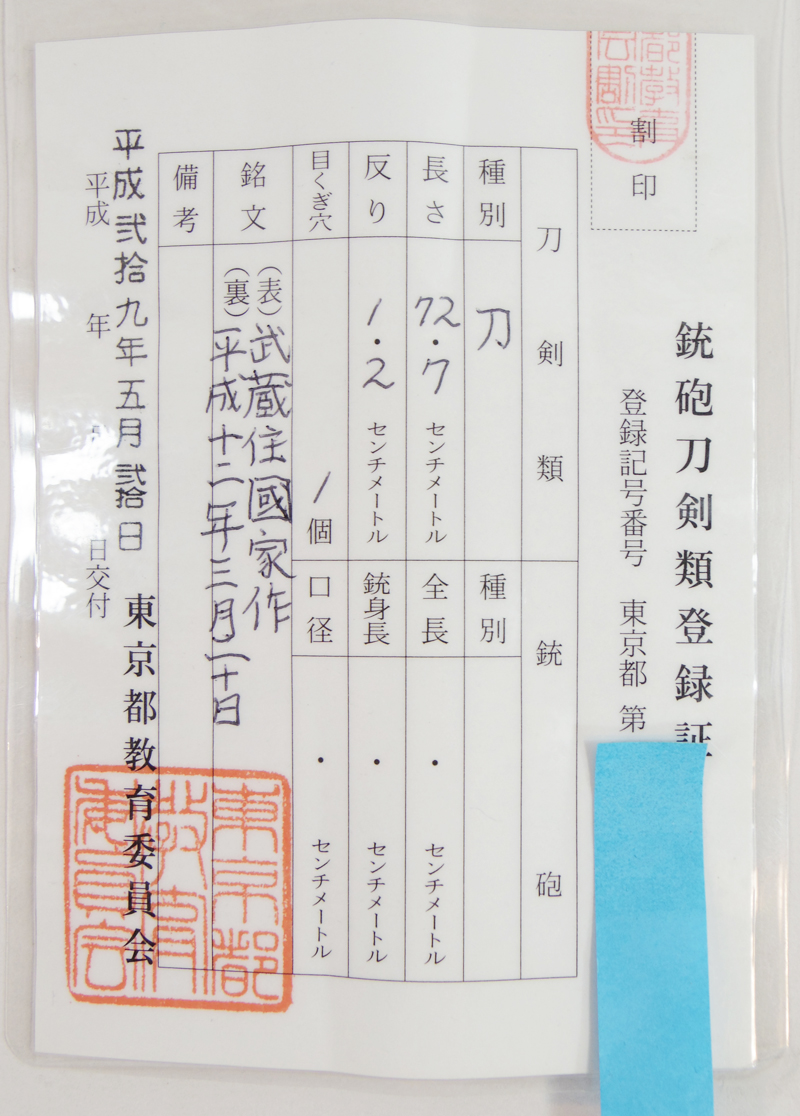 割印
銃砲刀剣類登録証
登録記号番号 東京都 第
刀剣類
銃砲
種別 刀
種別
長さ 72・7 センチメートル
全長 ・ センチメートル
反り 1・2 センチメートル
銃身長 ・ センチメートル
目くぎ穴 1個
口径 ・ センチメートル
銘文 (表)武蔵住國家作
(裏)平成十二年三月二十日
備考
平成弐拾九年五月弐拾日
平成 年 日交付
東京都教育委員会
東京都
教育
委員会